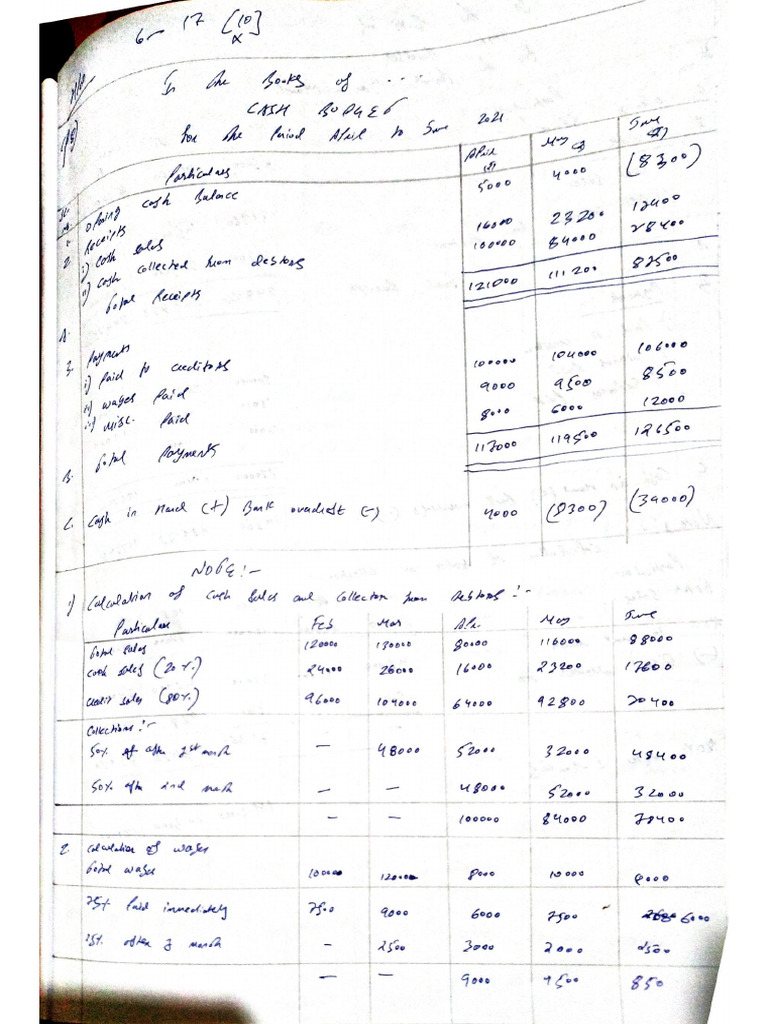 6- 17 [10]
x
In the Books of ...
CASH BUDGET
for the Period April to June 2021
Particulars April May June
Opening cash Balance 5000 4000 (8300)
Receipts
2. i) Cash sales 16000 23200
ii) Cash collected from debtors 100000 84000
A. Total Receipts 121000 111200 87500
3. Payments
i) Paid to creditors 100000 104000 106000
ii) Wages Paid 9000 9500 8500
iii) Misc. Paid 8000 6000 12000
B. Total Payments 119500 126500
C. Cash in Hand (+) Bank overdraft (-) 4000 (8300) (39000)
NOTE:-
1) Calculation of Cash Sales and Collection from Debtors :-
Particulars Feb Mar Apr. May June
Total sales 120000 130000 80000 116000 88000
Cash sales (20%) 24000 26000 16000 23200 17600
Credit sales (80%) 96000 104000 64000 92800
Collections :-
50% of after 1st month — 48000 52000 32000 48400
50% after 2nd month — — 48000 52000 32000
— — 100000 84000 78400
2. Calculation of wages
Total wages 8000 10000
75% Paid immediately 7500 9000 6000 7500 6000
25% after month - 2500 3000 2000
— — 9000 9500 850